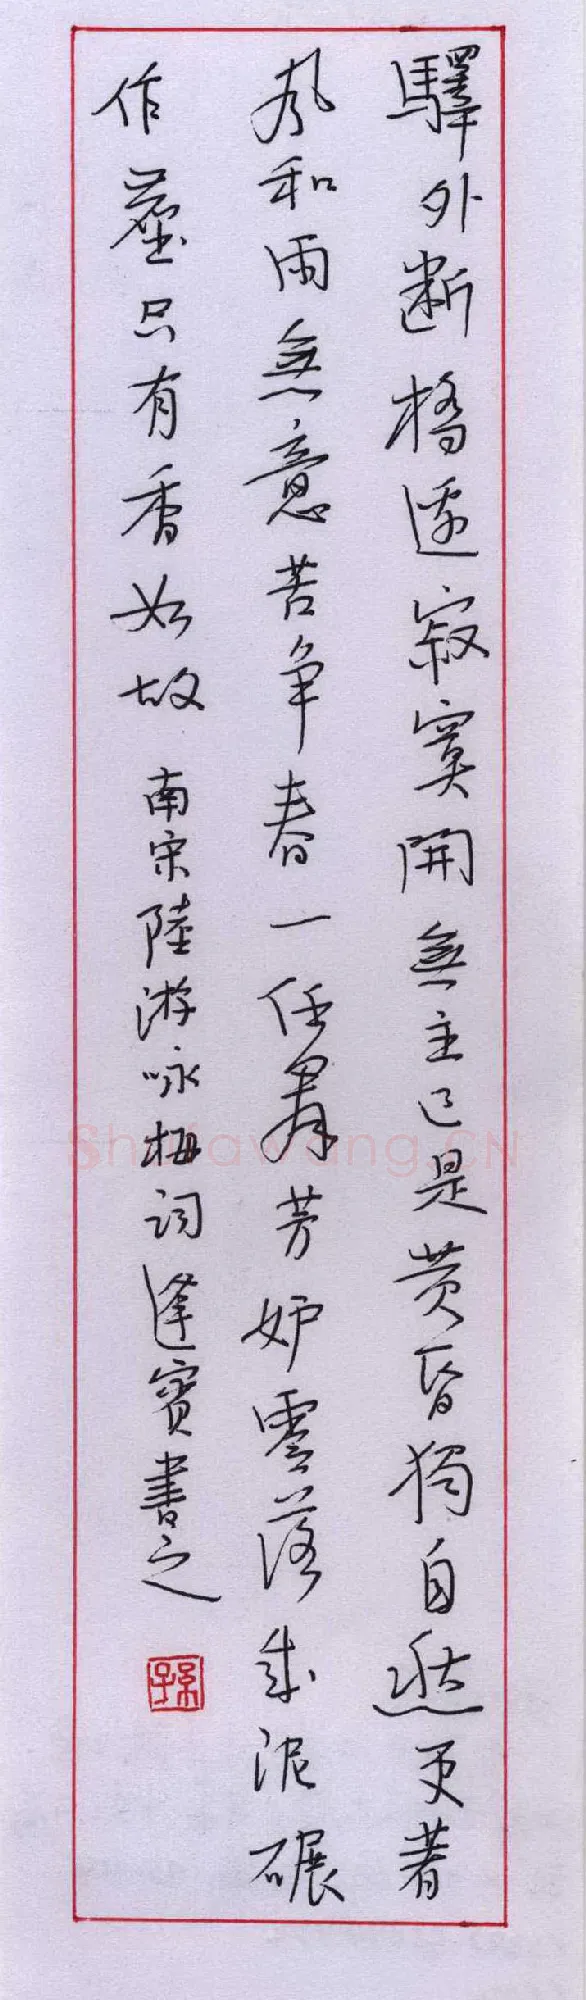 驛外断橋邊寂寞開無主已是黄昏獨自愁更著
風和雨無意苦争春一任羣芳妒零落成泥碾
作塵只有香如故 南宋陸游咏梅詞逢賓書之
孫
Shufawang.CN